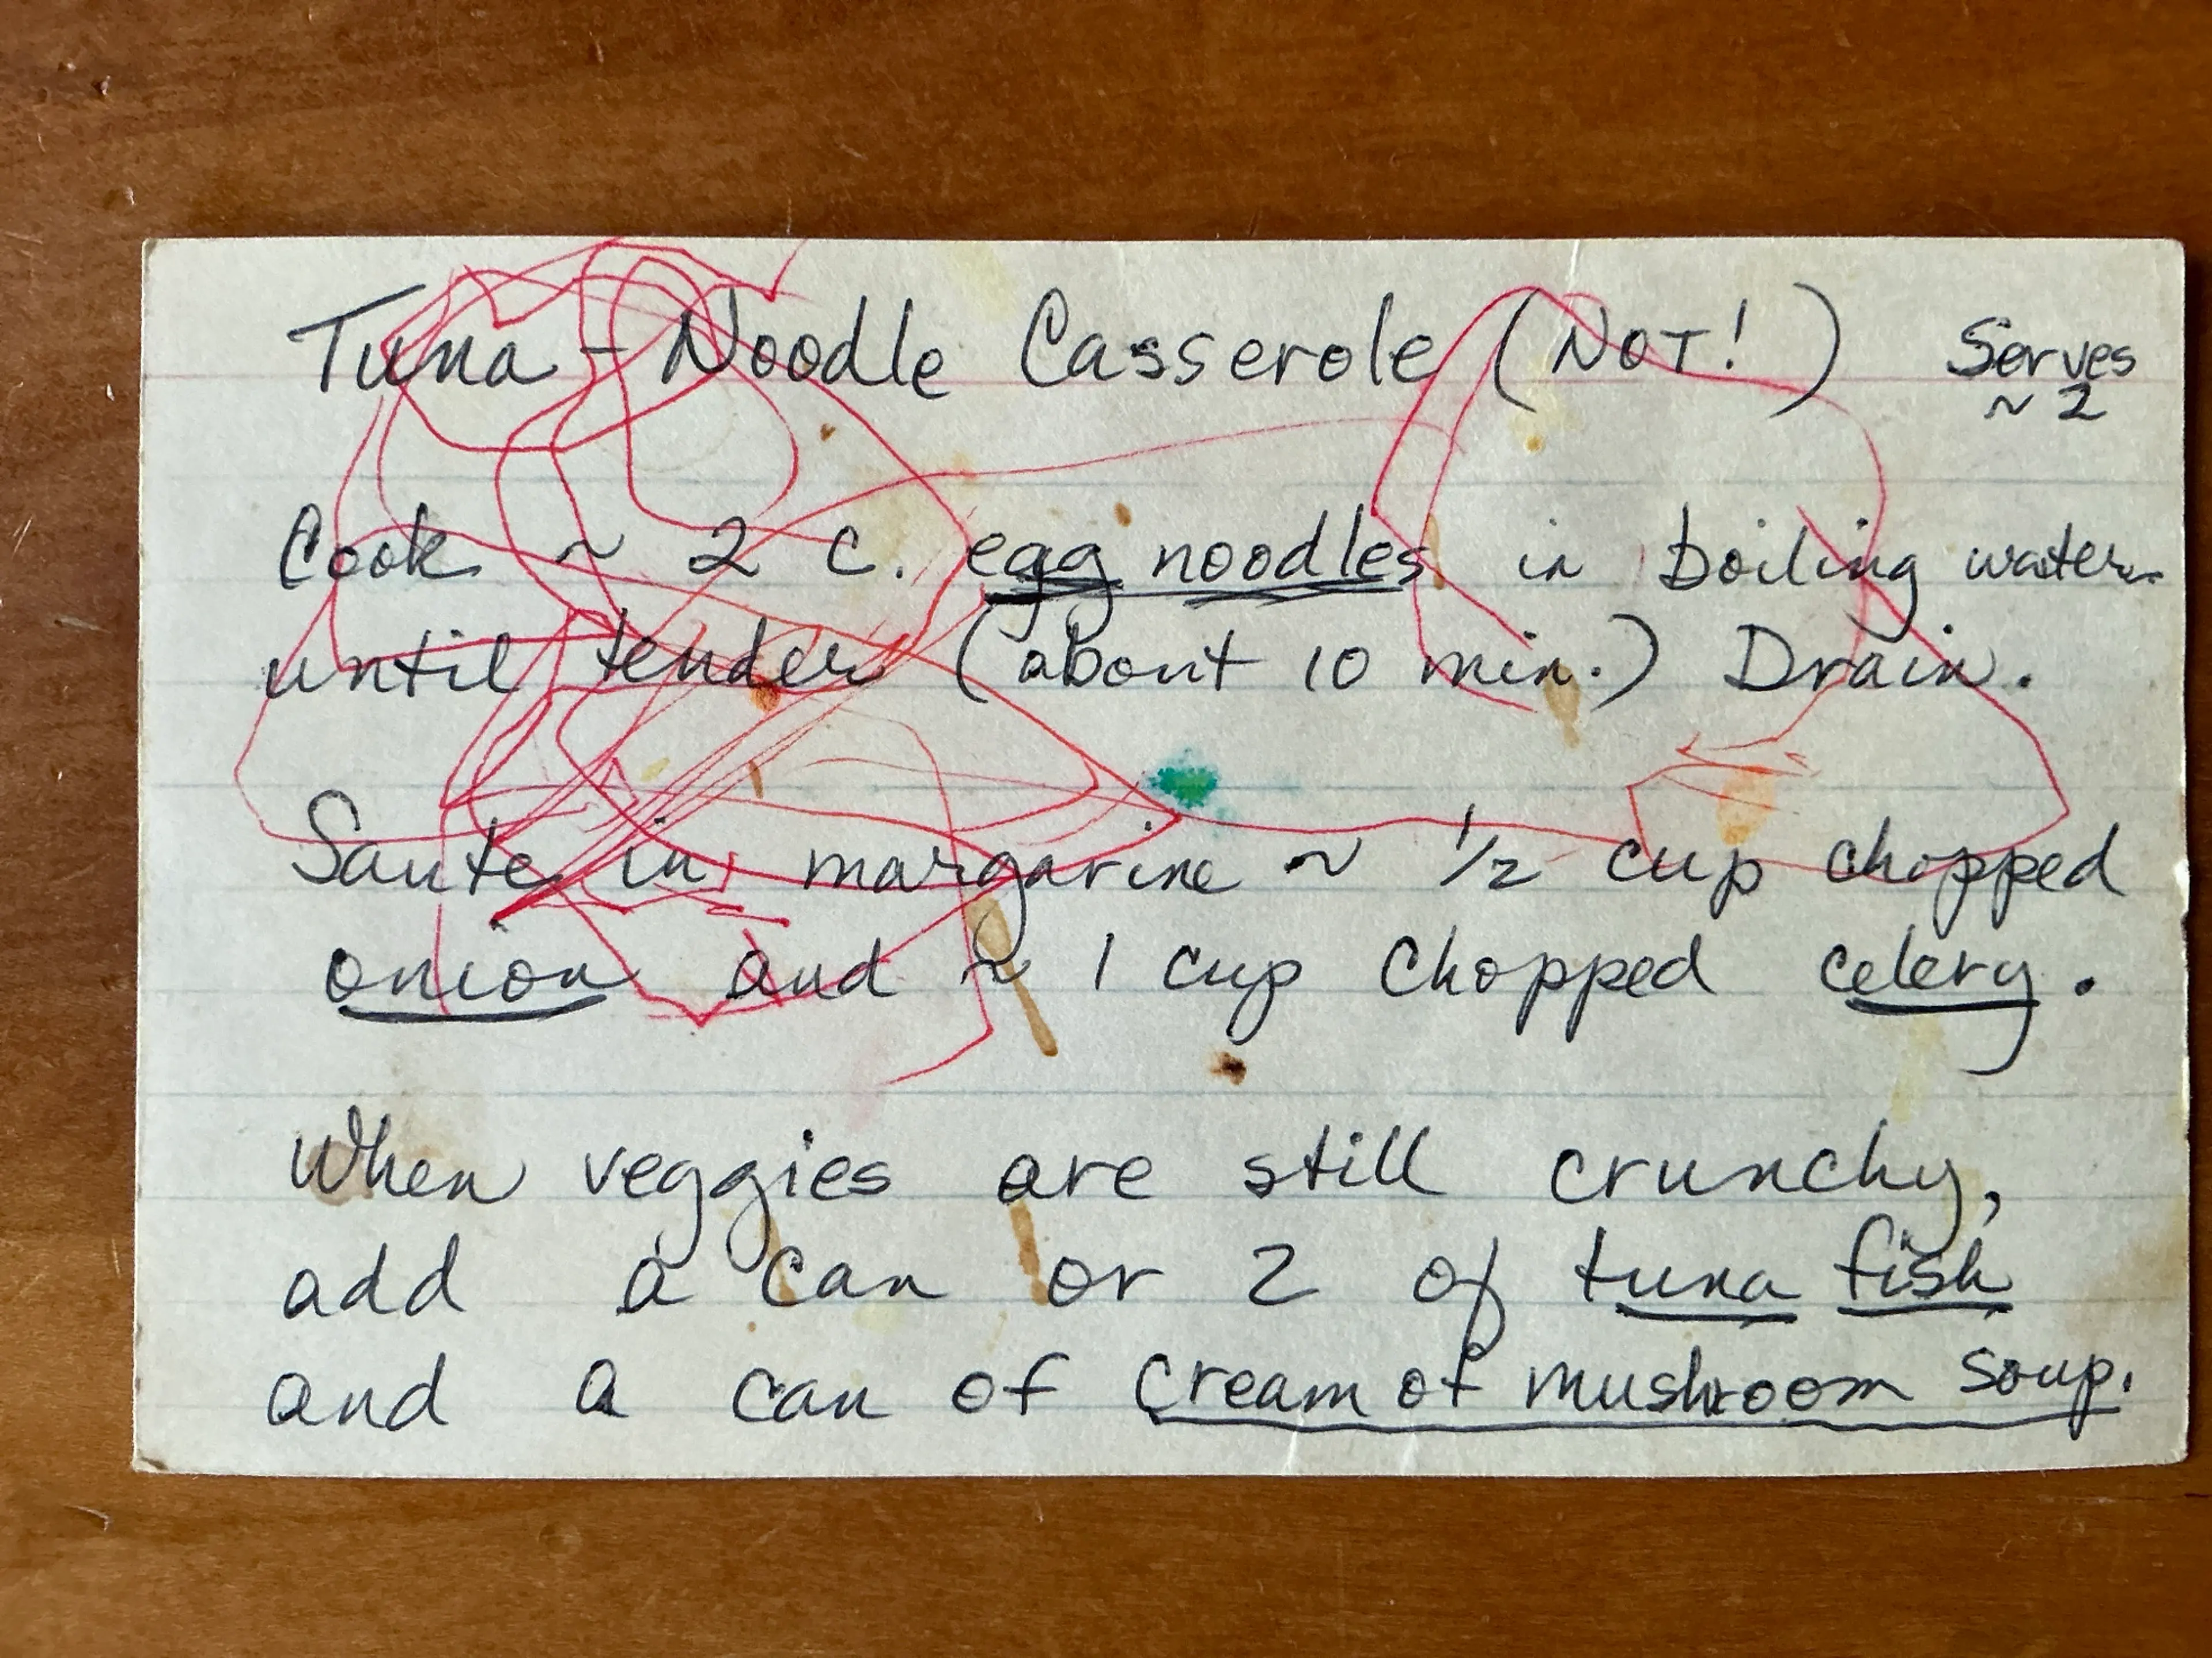 Tuna-Noodle Casserole (NOT!) Serves
~ 2
Cook ~ 2 c. egg noodles in boiling water
until tender (about 10 min.) Drain.
Saute in margarine ~ 1/2 cup chopped
onion and ~ 1 cup chopped celery.
When veggies are still crunchy,
add a can or 2 of tuna fish
and a can of cream of mushroom soup.